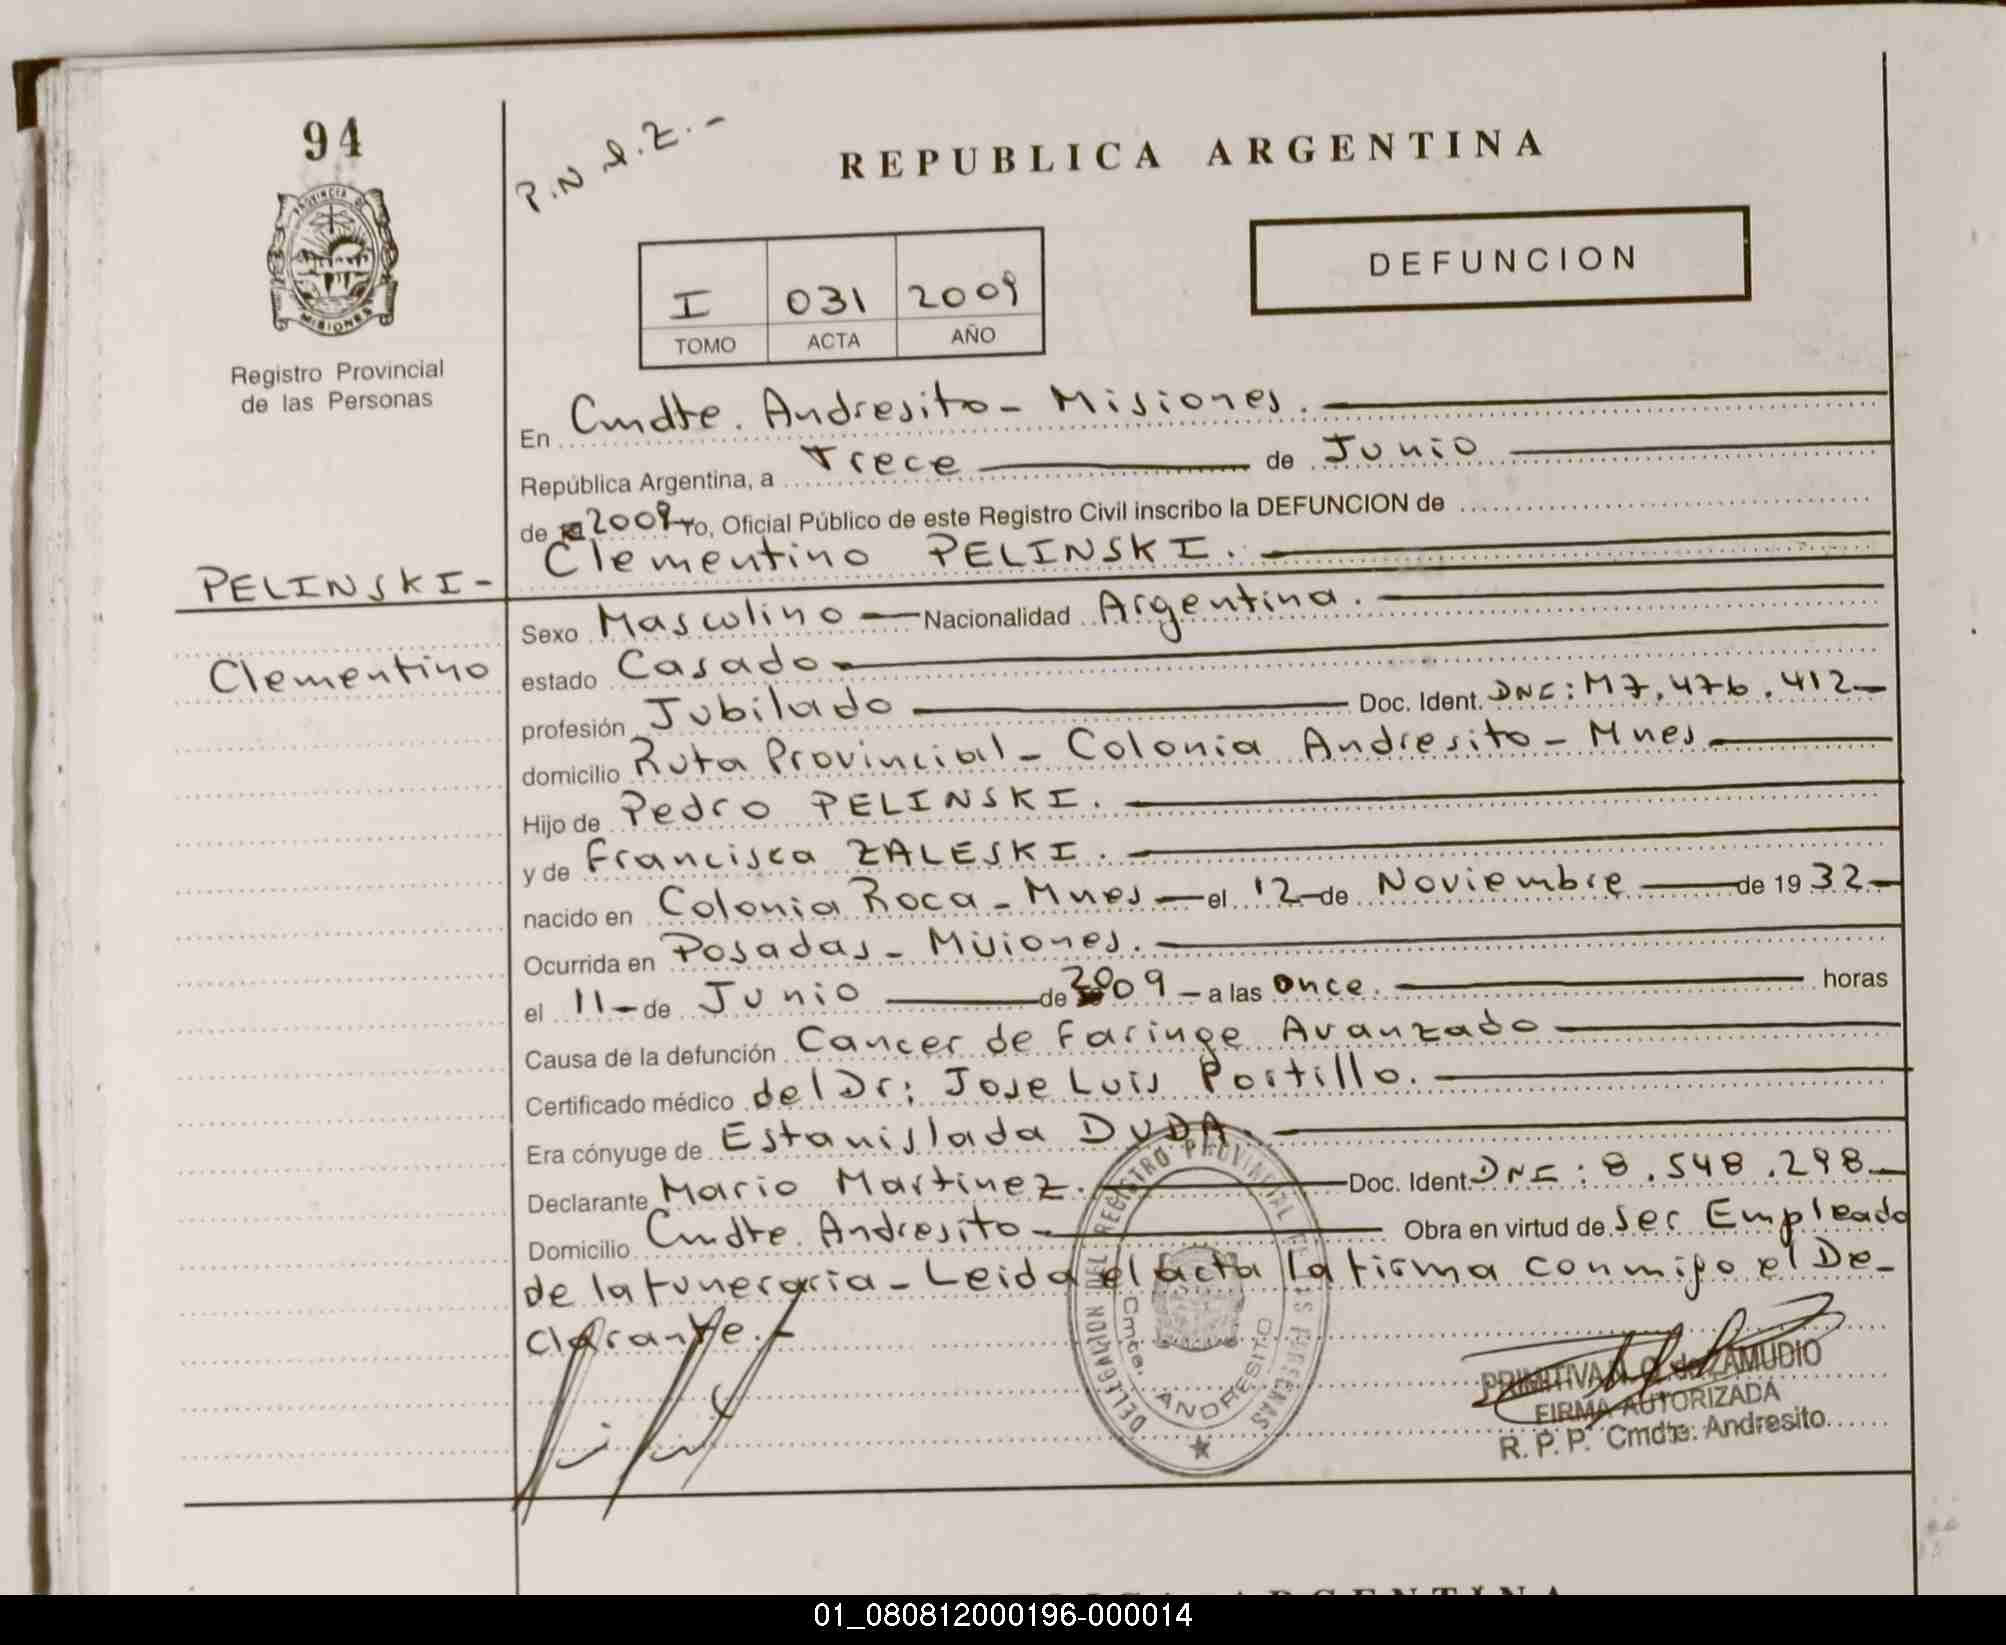 94
P.N
REPUBLICA ARGENTINA
PROVINCIA DE
MISIONES
Registro Provincial
de las Personas
I 031 2009
TOMO ACTA AÑO
DEFUNCION
En Cmdte. Andresito - Misiones.
República Argentina, a Trece de Junio
de 2009 Yo, Oficial Público de este Registro Civil inscribo la DEFUNCION de
Clementino PELINSKI.
PELINSKI-
Clementino
Sexo Masculino Nacionalidad Argentina.
estado Casado
profesión Jubilado Doc. Ident. DNI: M7.476.412
domicilio Ruta Provincial - Colonia Andresito - Mnes
Hijo de Pedro PELINSKI.
y de Francisca ZALESKI.
nacido en Colonia Roca - Mnes el 12 de Noviembre de 1932
Ocurrida en Posadas - Misiones.
el 11 de Junio de 2009 - a las once. horas
Causa de la defunción Cancer de Faringe Avanzado
Certificado médico del Dr: Jose Luis Portillo.
Era cónyuge de Estanislada DUDA.
Declarante Mario Martinez. Doc. Ident. DNI: 8.548.298
Domicilio Cmdte. Andresito - Obra en virtud de Ser Empleado
de la Funeraria - Leida el acta la firma conmigo el De-
clarante.-
DELEGACION DEL REGISTRO PROVINCIAL DE LAS PERSONAS
Cmdte. ANDRESITO
PRIMITIVA de ZAMUDIO
FIRMA AUTORIZADA
R. P. P. Cmdte. Andresito
ARGENTINA
01_080812000196-000014